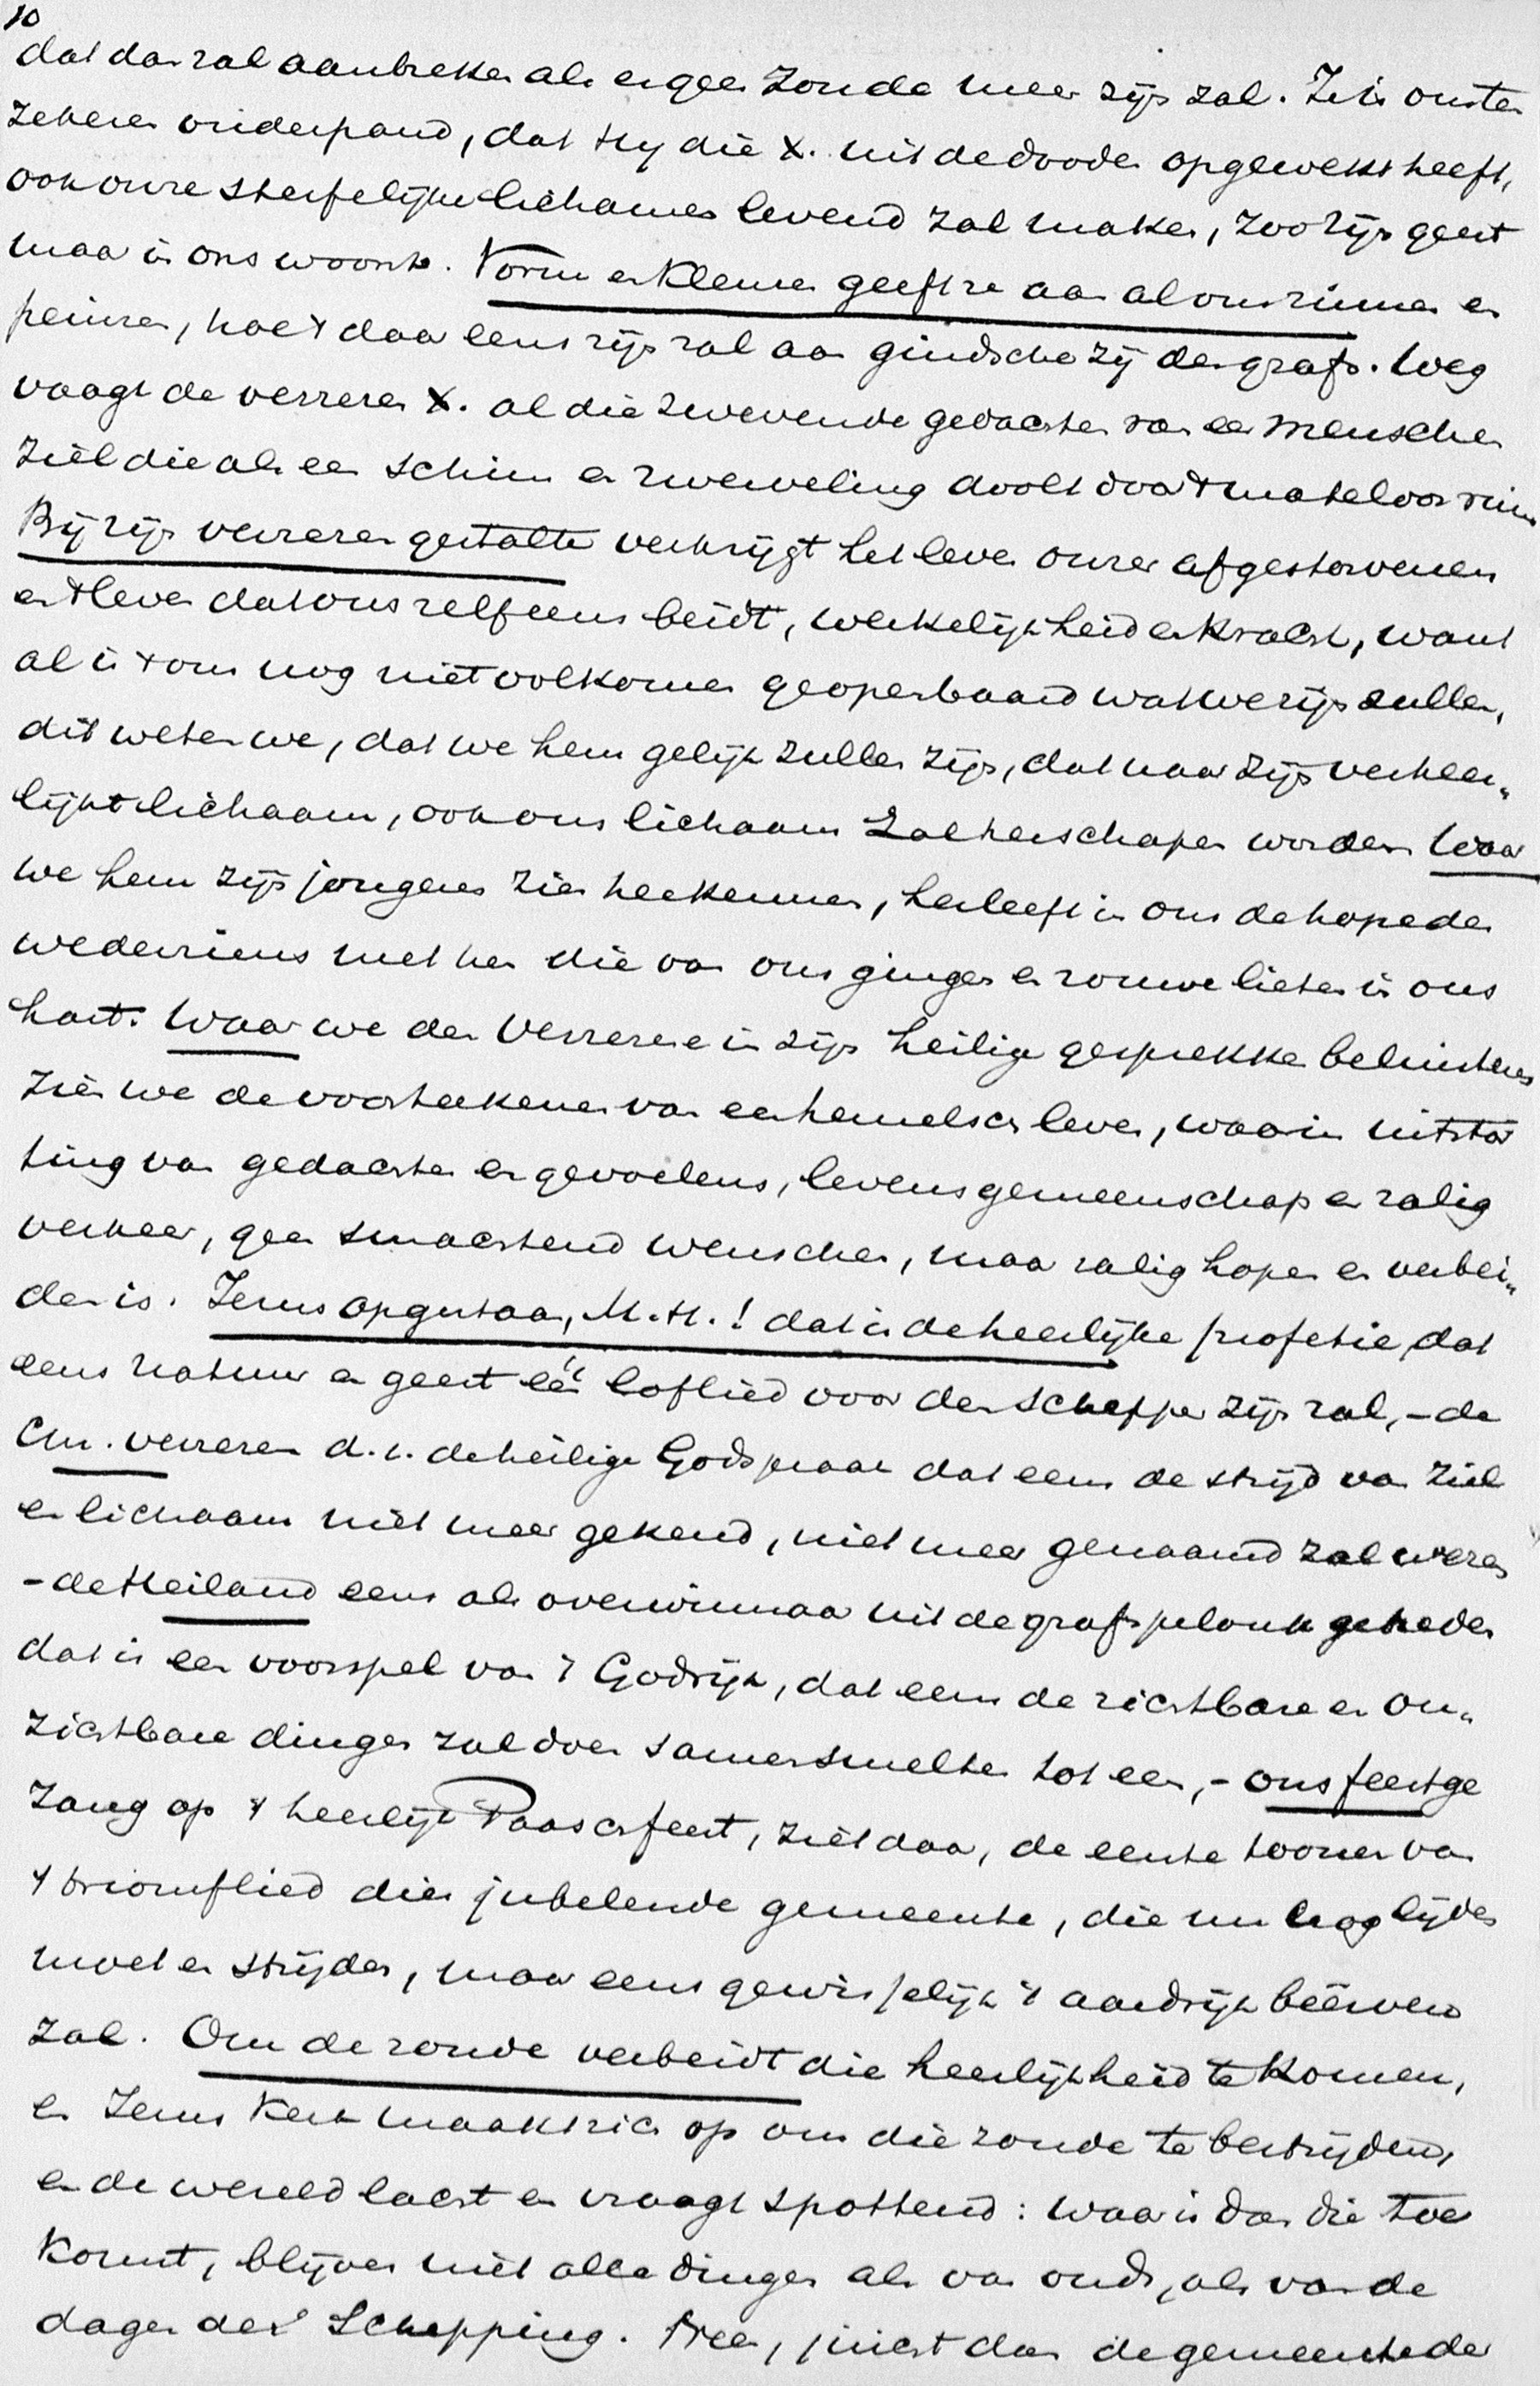 10
dat dan zal aanbreken als er geen Zonde meer zijn zal. Ze is ons ten
zekeren onderpand, dat Hy die X. uit de dooden opgewekt heeft,
ook onze sterfelijke lichamen levend zal maken, zoo zijn geest
maar in ons woont. Vorm en kleur geeft ze aan al ons zinnen en
peinzen, hoe 't daar eens zijn zal aan gindsche zij des grafs. Weg
vaagt de verrezen X. al die zwevende gedachten van een menschen
ziel die als een schim en zweveling doolt door 't mateloos ruim
Bij zijn verrezen gestalte verkrijgt het leven onzer afgestorvenen
en 't leven dat ons zelf eens beidt, werkelijkheid en kracht, want
al is 't ons nog niet volkomen geopenbaard wat we zijn zullen,
dit weten we, dat we hem gelijk zullen zijn, dat naar zijn verheer„
lijkt lichaam, ook ons lichaam zal herschapen worden Waar
we hem zijn jongeren zien herkennen, herleeft in ons de hope des
wederziens met hen die van ons gingen en rouwe lieten in ons
hart. Waar we den Verrezene in zijn heilige gesprekken beluisteren
zien we de voorteekenen van een hemelsch leven, waarin uitstor
ting van gedachten en gevoelens, levensgemeenschap en zalig
verkeer, geen smachtend wenschen, maar zalig hopen en verbei„
den is. Jezus opgestaan, M.H.! dat is de heerlijke profetie, dat
eens natuur en geest één loflied voor den schepper zijn zal, – de
Chr. verrezen d.i. de heilige Godspraak dat eens de strijd van ziel
en lichaam niet meer gekend, niet meer genaamd zal wezen
– de Heiland eens als overwinnaar uit de grafspelonk getreden
dat is een voorspel van 't Godsrijk, dat eens de zichtbare en on„
zichtbare dingen zal doen samensmelten tot een, – ons feestge
zang op 't heerlijk Paaschfeest, ziet daar, de eerste toonen van
't triomflied dier jubelende gemeente, die nu nog lijden
moet en strijden, maar eens gewisselijk 't aardrijk beërven
zal. Om de zonde verbeidt die heerlijkheid te komen,
en Jezus Kerk maakt zich op om die zonde te bestrijden,
en de wereld lacht en vraagt spottend: waar is dan die toe
komst, blijven niet alle dingen als van ouds, als van de
dagen der Schepping. Neen, juicht dan de gemeente der